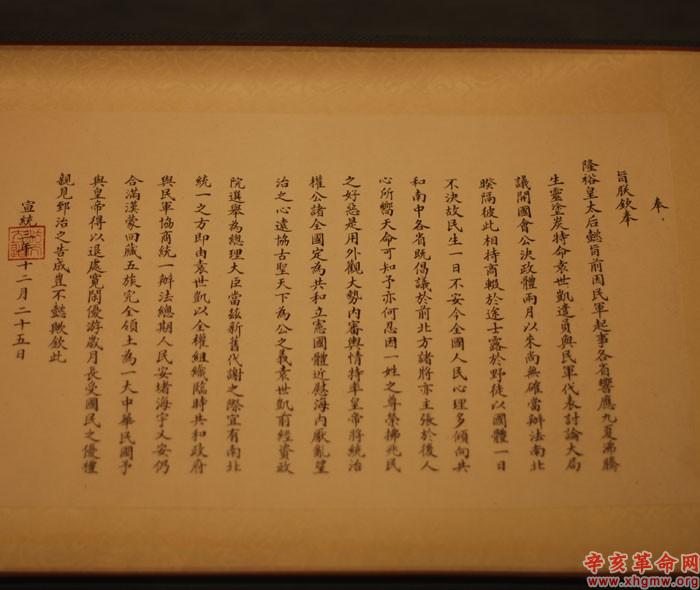 奉
旨朕欽奉
隆裕皇太后懿旨前因民軍起事各省響應九夏沸騰
生靈塗炭特命袁世凱遣員與民軍代表討論大局
議開國會公決政體兩月以來尚無確當辦法南北
暌隔彼此相持商輟於途士露於野徒以國體一日
不決故民生一日不安今全國人民心理多傾向共
和南中各省既倡議於前北方諸將亦主張於後人
心所嚮天命可知予亦何忍因一姓之尊榮拂兆民
之好惡是用外觀大勢內審輿情特率皇帝將統治
權公諸全國定為共和立憲國體近慰海內厭亂望
治之心遠協古聖天下為公之義袁世凱前經資政
院選舉為總理大臣當茲新舊代謝之際宜有南北
統一之方即由袁世凱以全權組織臨時共和政府
與民軍協商統一辦法總期人民安堵海宇乂安仍
合滿漢蒙回藏五族完全領土為一大中華民國予
與皇帝得以退處寬閒優游歲月長受國民之優禮
親見郅治之告成豈不懿歟欽此
宣統年十二月二十五日
辛亥革命网
www.xhgmw.org